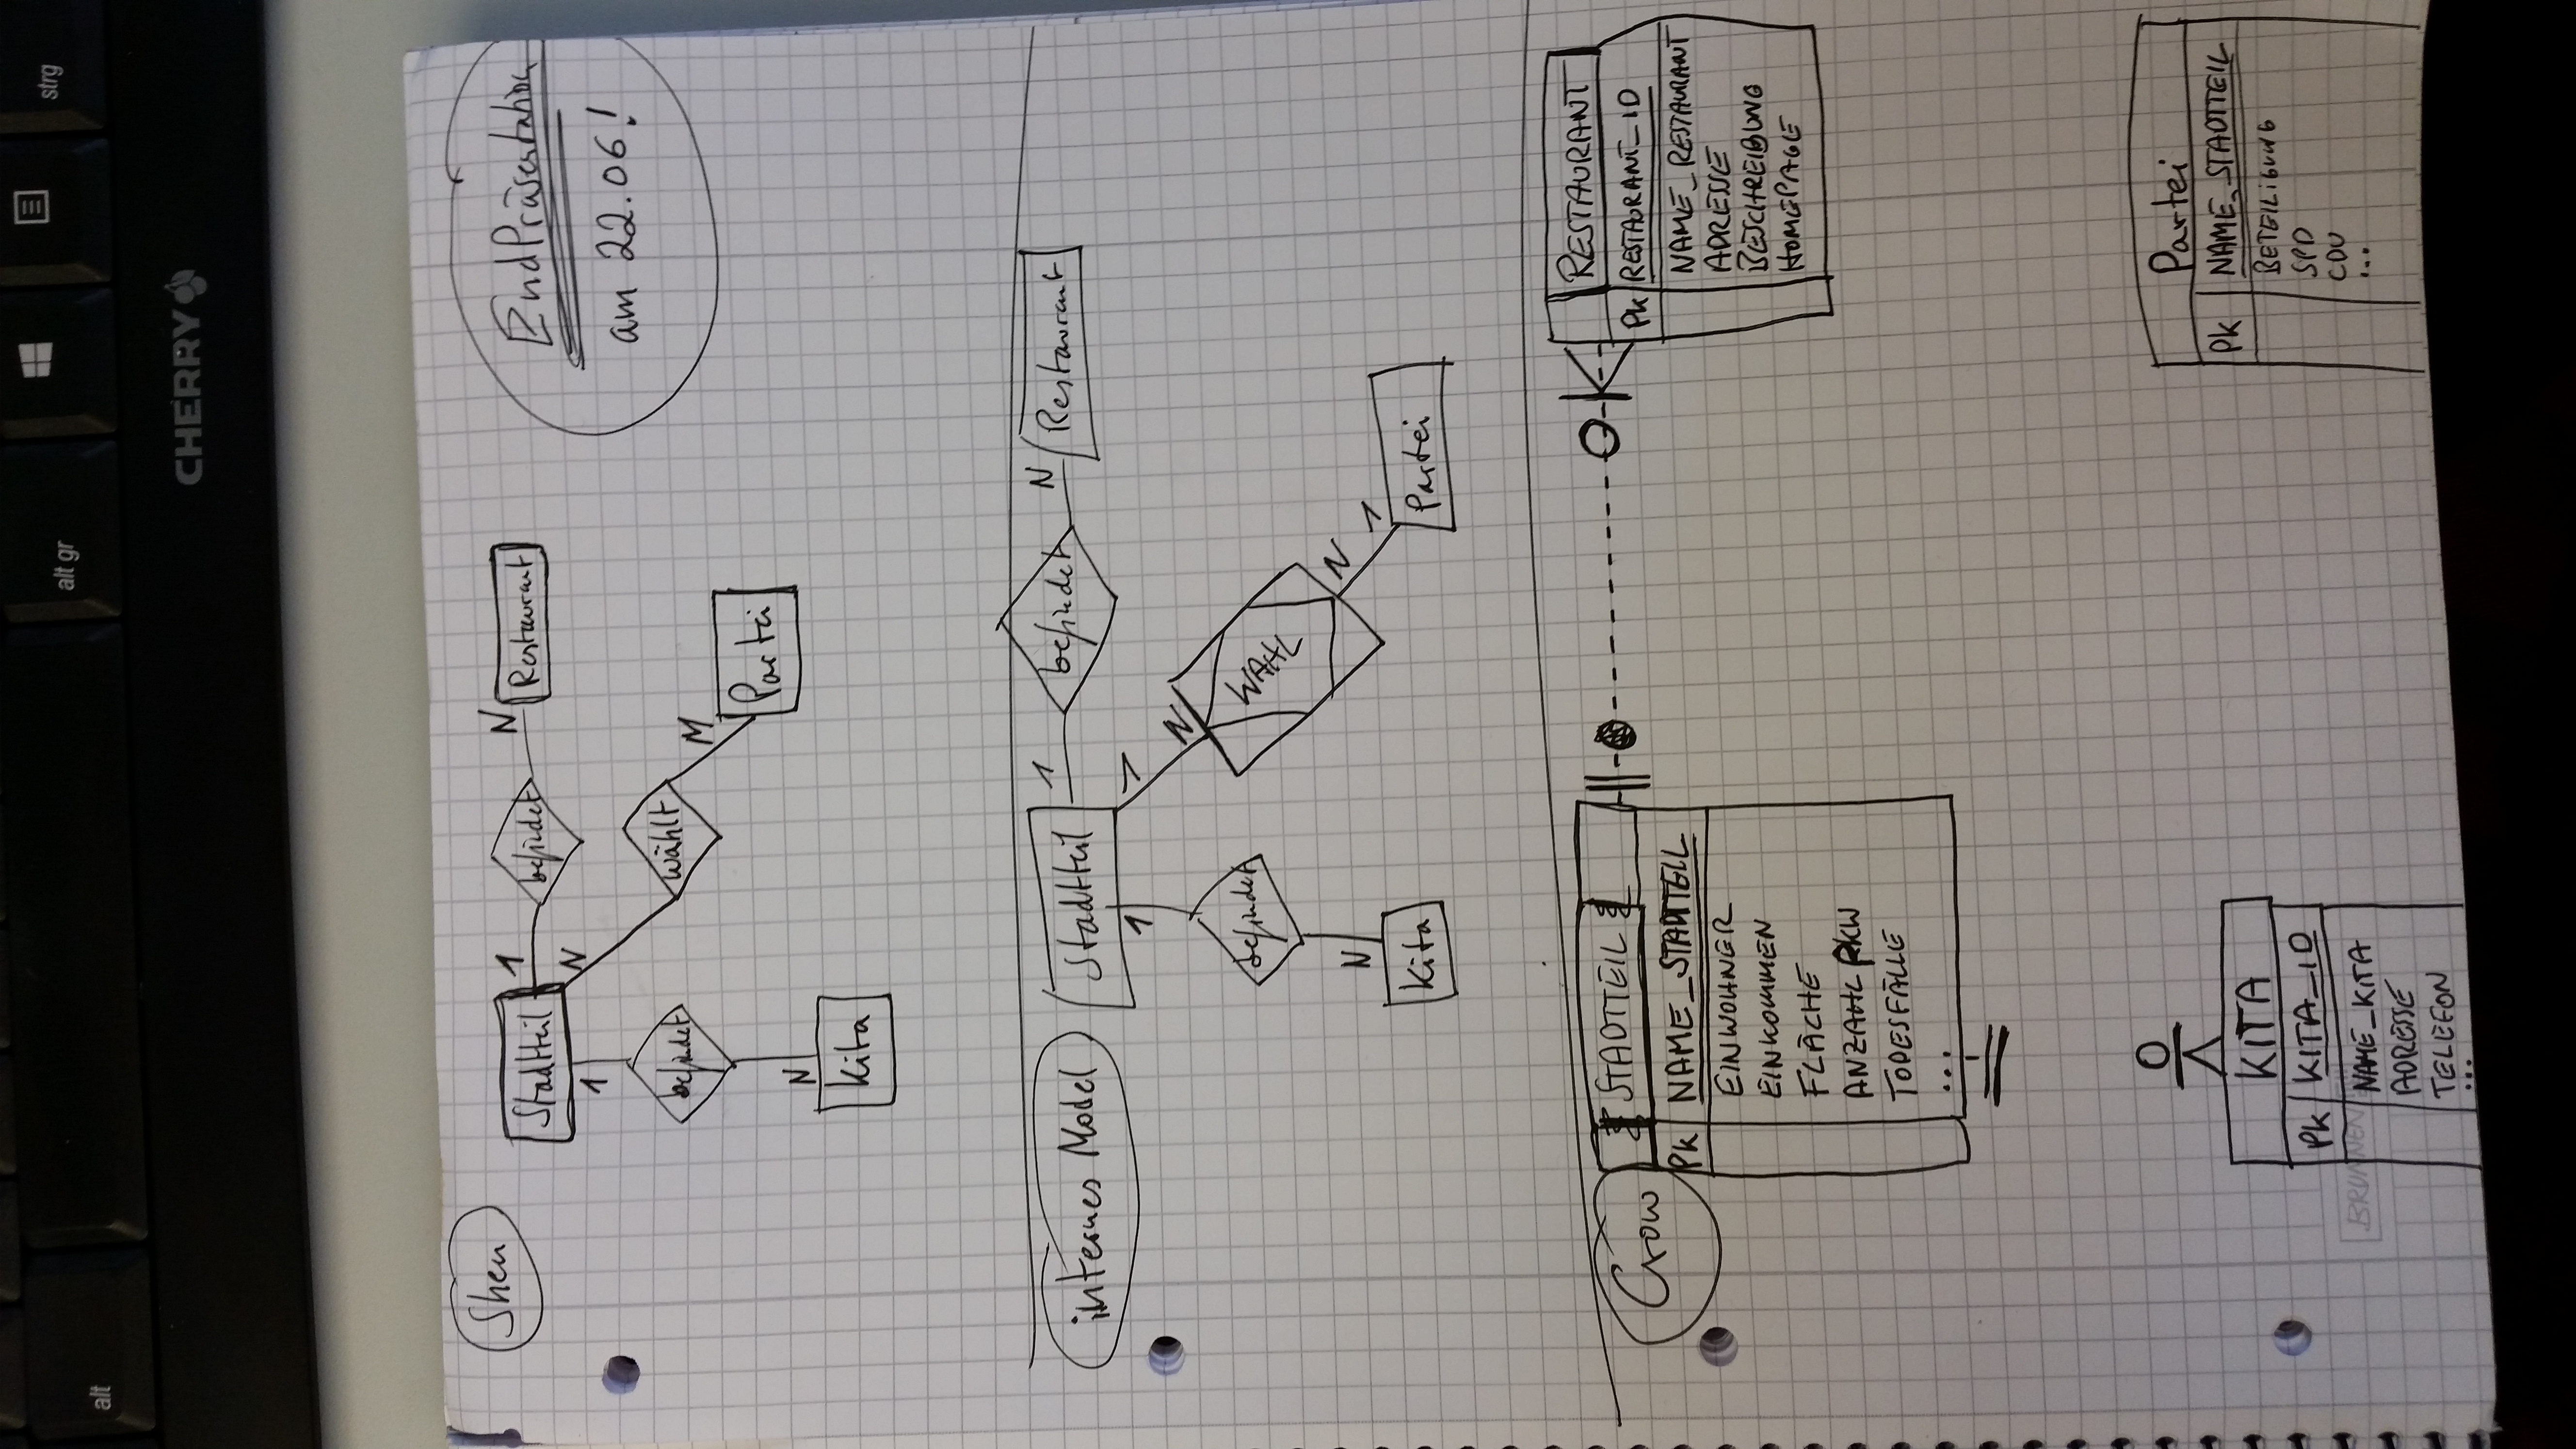 alt
alt gr
strg
CHERRY
Shen
EndPräsentation
am 22.06!
Stadtteil
1
befindet
N
Restaurant
N
wählt
M
Partei
1
befindet
N
Kita
internes Model
Stadtteil
1
befindet
N
Restaurant
1
N
WAHL
N
1
Partei
1
befindet
N
Kita
Crow
STADTTEIL
PK NAME_STADTTEIL
EINWOHNER
EINKOMMEN
FLÄCHE
ANZAHL PKW
TODESFÄLLE
...
RESTAURANT
PK RESTAURANT_ID
NAME_RESTAURANT
ADRESSE
BESCHREIBUNG
HOMEPAGE
KITA
PK KITA_ID
NAME_KITA
ADRESSE
TELEFON
...
BRUNNEN
Partei
PK NAME_STADTTEIL
BETEILIGUNG
SPD
CDU
...